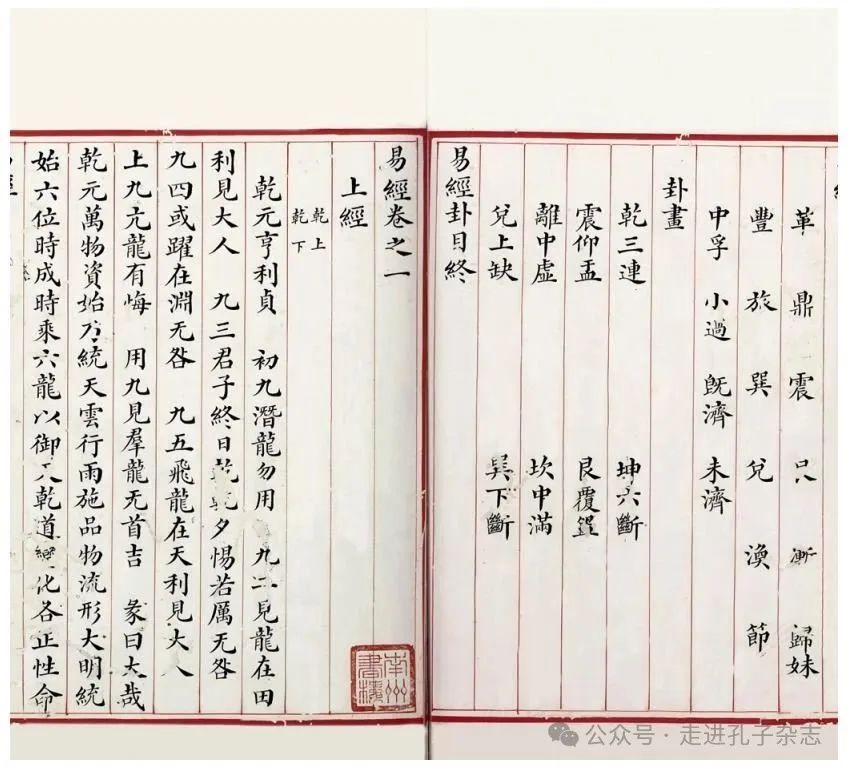 革 鼎 震 漸 歸妹
豐 旅 巽 兌 渙 節
中孚 小過 既濟 未濟
卦畫
乾三連 坤六斷
震仰盂 艮覆盌
離中虛 坎中滿
兌上缺 巽下斷
易經卦目終
易經卷之一
上經
乾上
乾下
乾元亨利貞 初九潛龍勿用 九二見龍在田
利見大人 九三君子終日乾乾夕惕若厲无咎
九四或躍在淵无咎 九五飛龍在天利見大人
上九亢龍有悔 用九見羣龍无首吉 彖曰大哉
乾元萬物資始乃統天雲行雨施品物流形大明終
始六位時成時乘六龍以御天乾道變化各正性命
南州書樓
公众号·走进孔子杂志